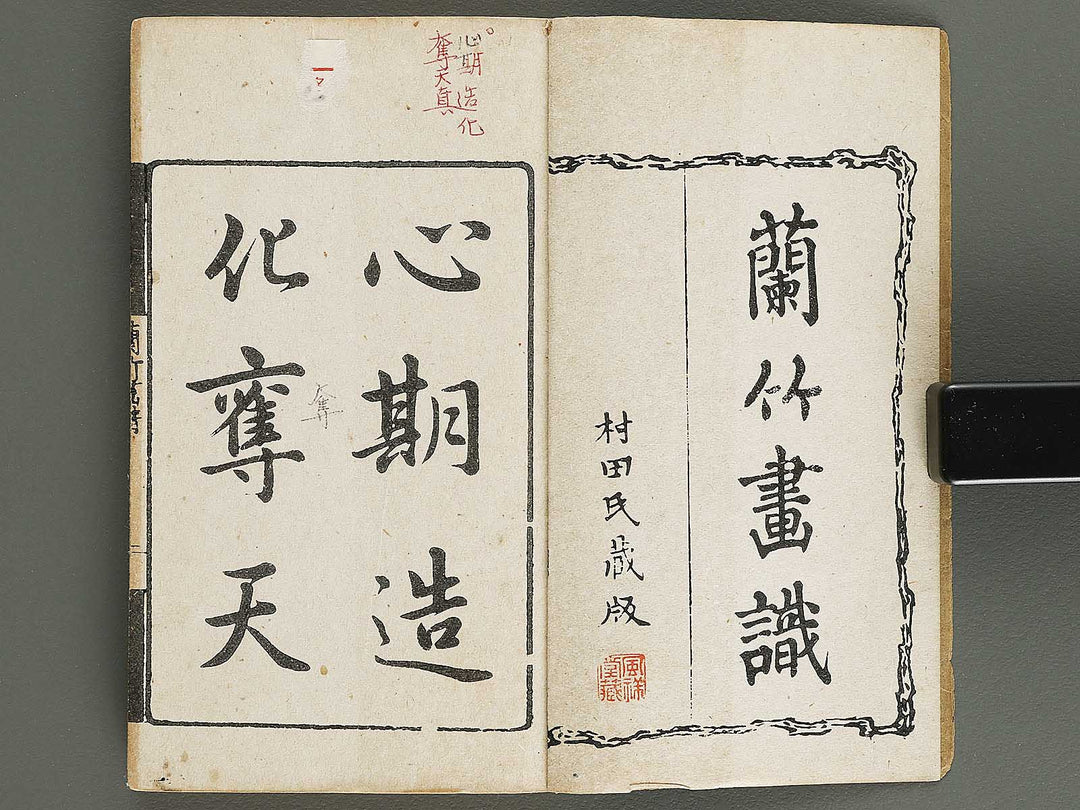 蘭竹畫識
村田氏蔵版
心期造化
奪天真
心期造
化奪天
奪